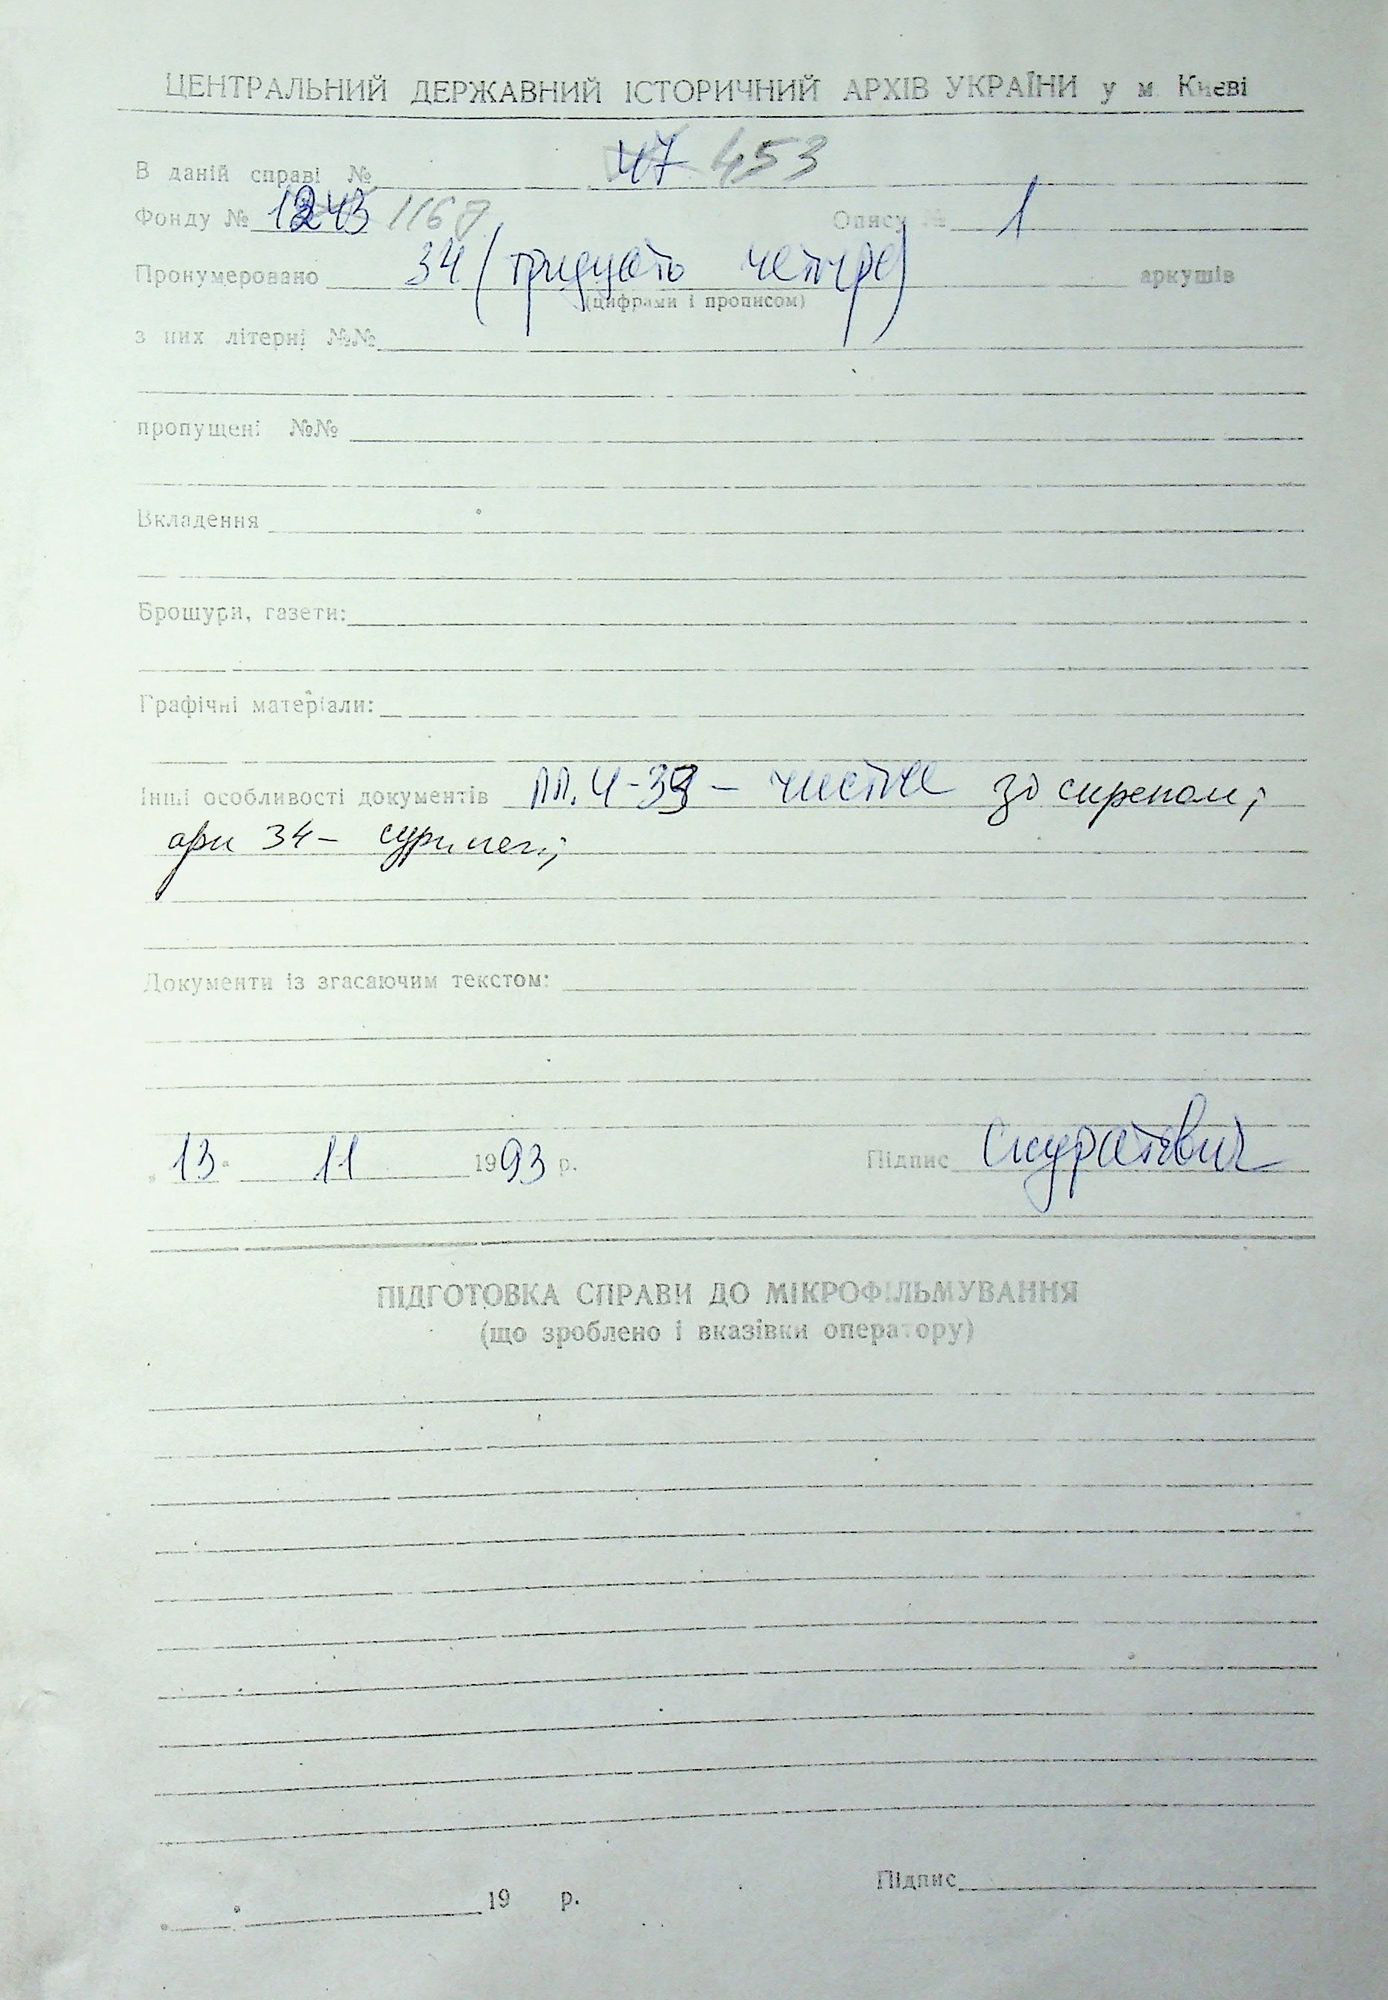 ЦЕНТРАЛЬНИЙ ДЕРЖАВНИЙ ІСТОРИЧНИЙ АРХІВ УКРАЇНИ у м. Києві
В даній справі № 47 453
Фонду № 1243 Опису № 1
Пронумеровано 34 (тридцять чотири) аркушів
(цифрами і прописом)
з них літерні №№
пропущені №№
Вкладення
Брошури, газети:
Графічні матеріали:
Інші особливості документів 4-33 – чисті зі скрепом;
арк 34 –
Документи із згасаючим текстом:
"13" 11 1993 р. Підпис Скуратович
ПІДГОТОВКА СПРАВИ ДО МІКРОФІЛЬМУВАННЯ
(що зроблено і вказівки оператору)
Підпис
19 р.